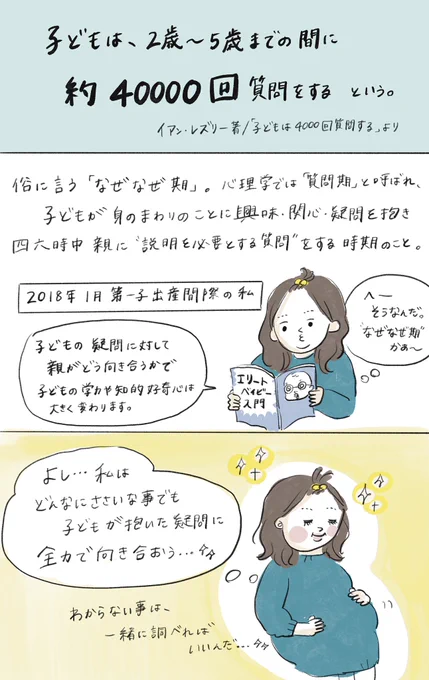 子どもは、2歳〜5歳までの間に
約40000回質問をする という。
イアン・レズリー著/「子どもは4000回質問する」より
俗に言う「なぜなぜ期」。心理学では"質問期"と呼ばれ、
子どもが身のまわりのことに興味・関心・疑問を抱き
四六時中親に"説明を必要とする質問"をする時期のこと。
2018年1月 第一子出産間際の私
へー
そうなんだ。
"なぜなぜ期"
かぁ〜
子どもの疑問に対して
親がどう向き合うかで
子どもの学力や知的好奇心は
大きく変わります。
エリート
ベイビー
入門
よし…私は
どんなにささいな事でも
子どもが抱いた疑問に
全力で向き合おう…
わからない事は、
一緒に調べれば
いいんだ…